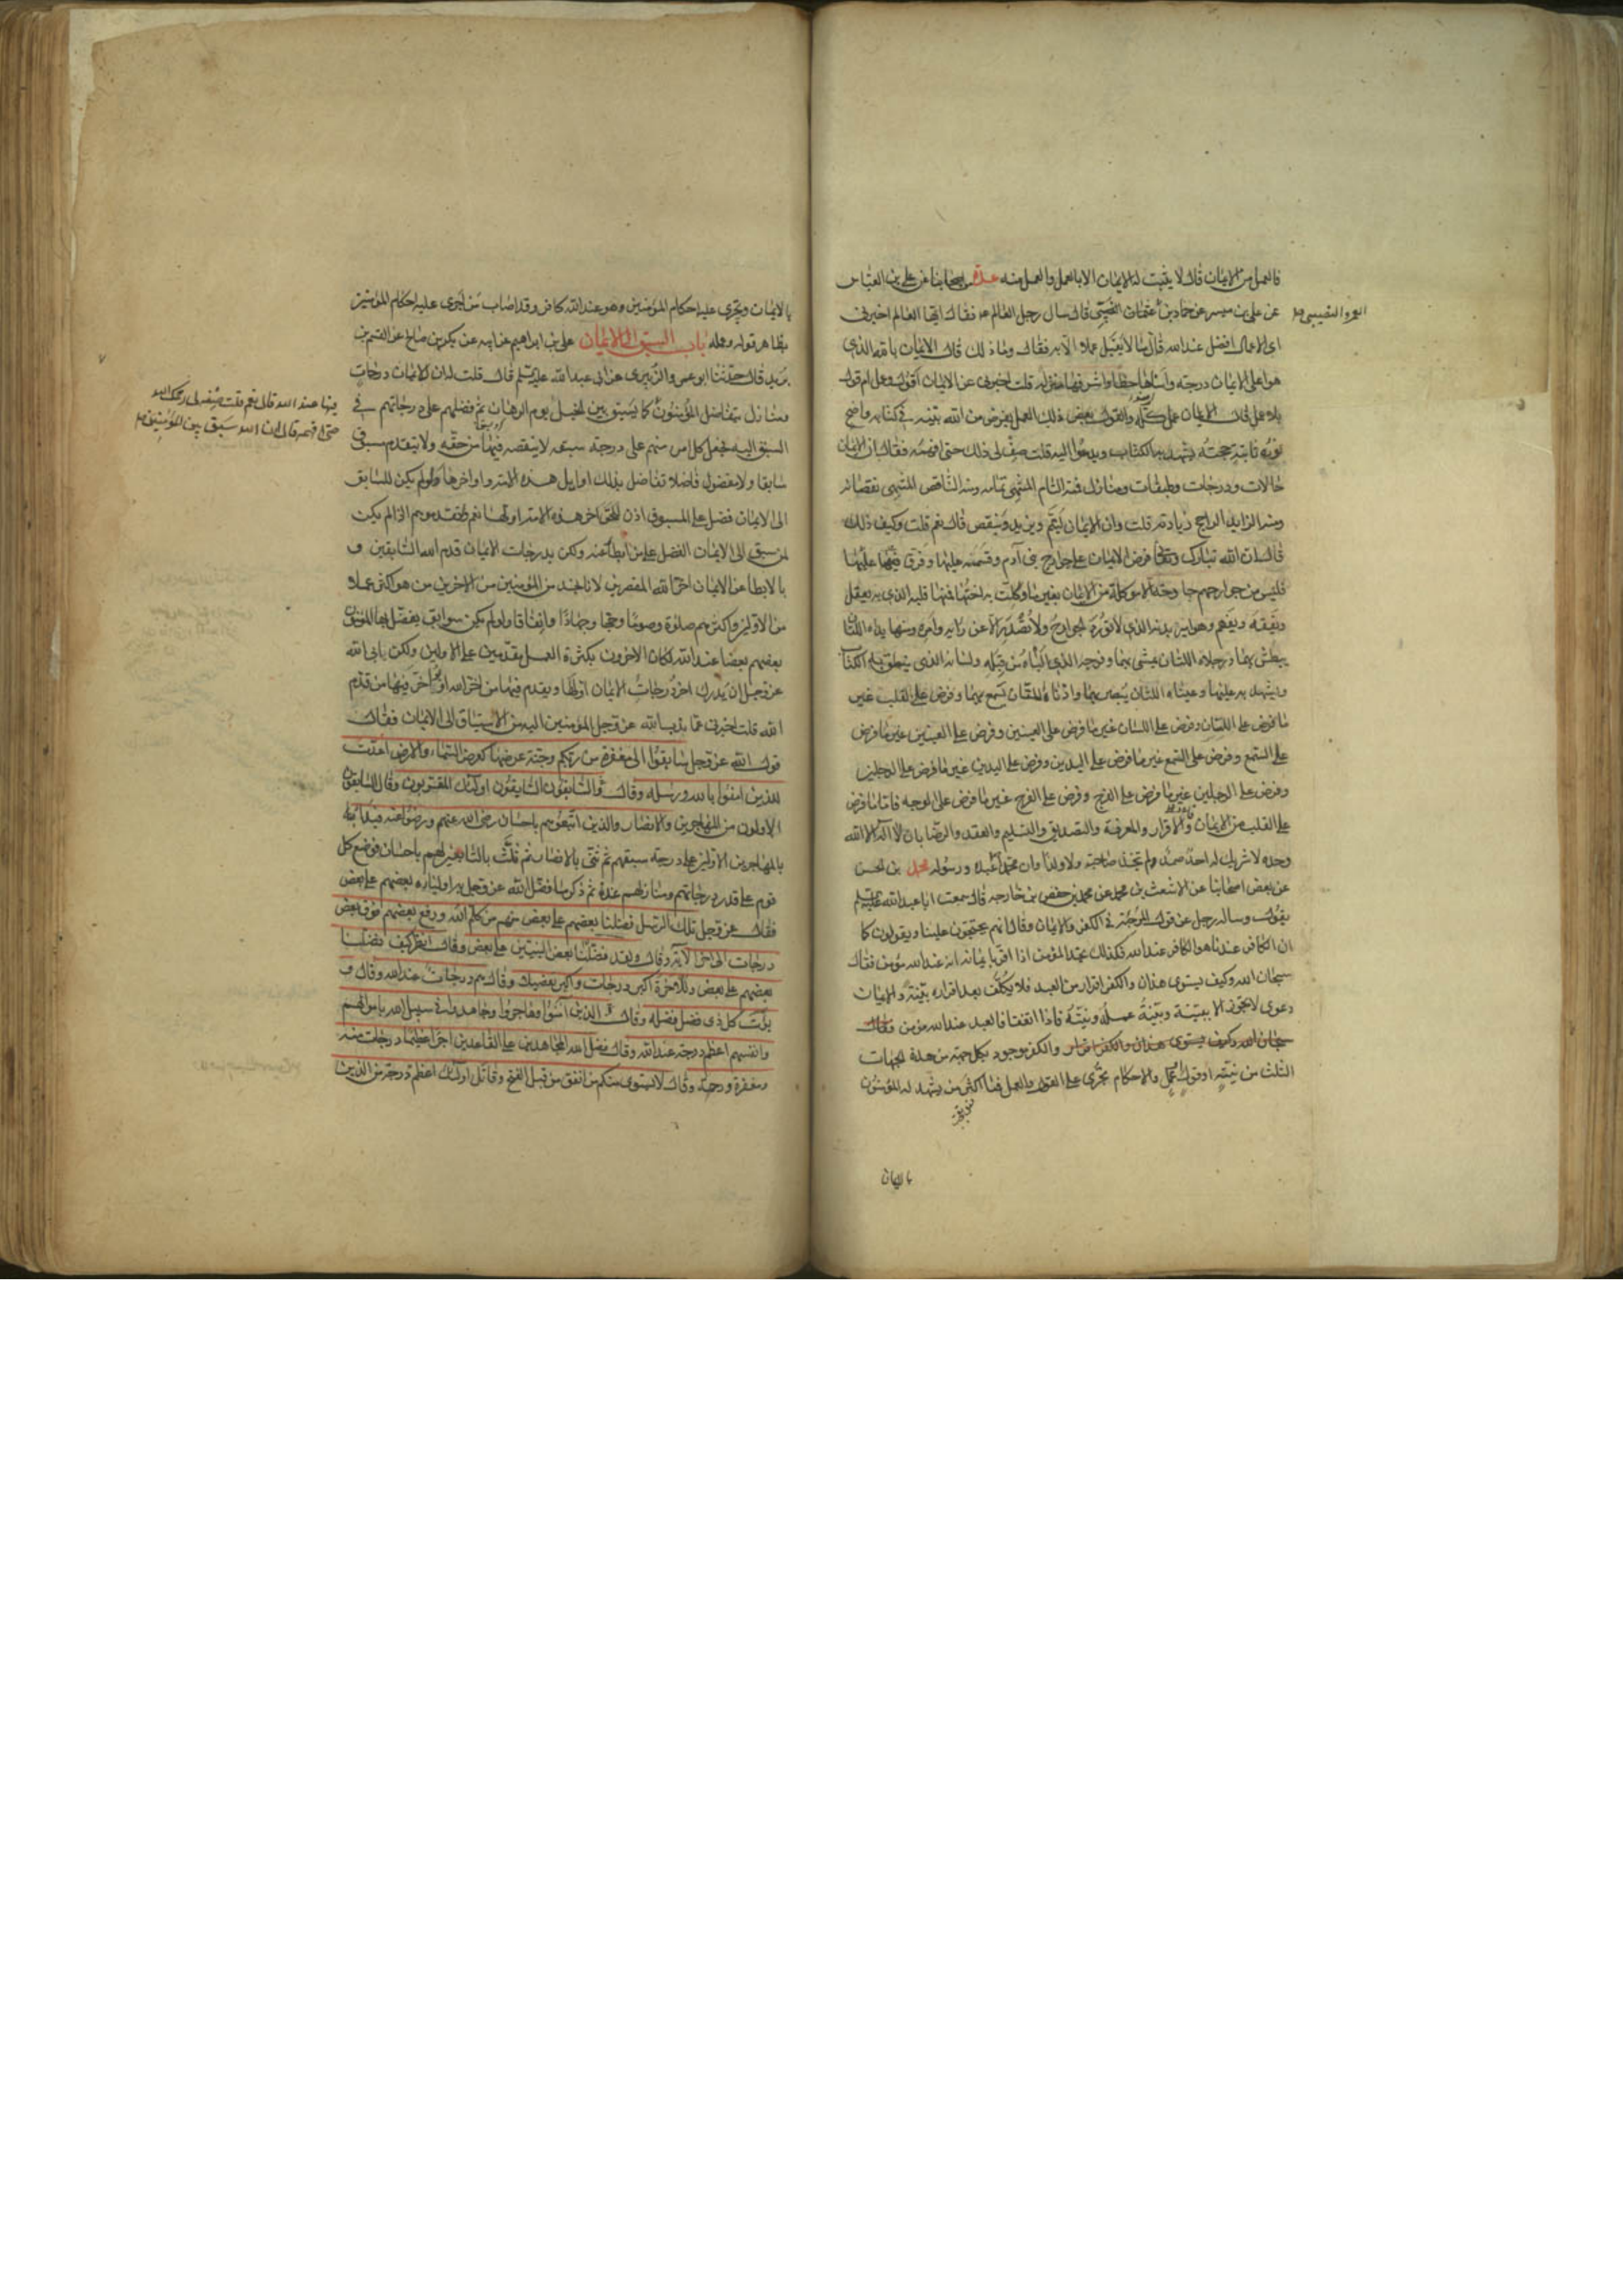 فالعمل من الايمان قال لا يثبت له الايمان الا بالعمل والعمل منه عدة من اصحابنا عن علي بن العباس
عن علي بن ميسر عن حماد بن عثمان النصيبي قال سال رجل العالم ع فقال ايها العالم اخبرني
اي الاعمال افضل عند الله قال ما لا يقبل عملا الا به فقال وما ذلك قال الايمان بالله الذي
هو اعلى الايمان درجة واسناها حظا واشرفها منزلة قلت اخبرني عن الايمان اقول وعمل ام قول
بلا عمل قال الايمان عمل كله والقول بعض ذلك العمل بفرض من الله بينه في كتابه واضح
نوره ثابتة حجته يشهد به الكتاب ويدعوا اليه قلت صف لي ذلك حتى افهمه فقال ان الايمان
حالات ودرجات وطبقات ومنازل فمنه التام المنتهي تمامه ومنه الناقص المنتهي نقصانه
ومنه الزايد الراجح زيادته قلت وان الايمان ليتم ويزيد وينقص قال نعم قلت وكيف ذلك
قال ان الله تبارك وتعالى فرض الايمان على جوارح بني آدم وقسمه عليها وفرقه عليها
فليس من جوارحهم جارحة الا وهي موكلة من الايمان بغير ما وكلت به اختها فمنها قلبه الذي به يعقل
ويفقه ويفهم وهو امير بدنه الذي لا تورد الجوارح ولا تصدر الا عن رايه وامره ومنها يداه اللتان
يبطش بهما ورجلاه اللتان يمشي بهما وفرجه الذي الباه من قبله ولسانه الذي ينطق به الكتاب
ويشهد به عليها وعيناه اللتان يبصر بهما واذناه اللتان يسمع بهما وفرض على القلب غير
ما فرض على اللسان وفرض على اللسان غير ما فرض على العينين وفرض على العينين غير ما فرض
على السمع وفرض على السمع غير ما فرض على اليدين وفرض على اليدين غير ما فرض على الرجلين
وفرض على الرجلين غير ما فرض على الفرج وفرض على الفرج غير ما فرض على الوجه فاما ما فرض
على القلب من الايمان فالاقرار والمعرفة والتصديق والتسليم والعقد والرضا بان لا اله الا الله
وحده لا شريك له احدا صمدا لم يتخذ صاحبة ولا ولدا وان محمدا عبده ورسوله محمد بن الحسن
عن بعض اصحابنا عن الاشعث بن محمد عن محمد بن حفص بن خارجه قال سمعت ابا عبد الله عليه السلم
يقول وساله رجل عن قول المرجئة في الكفر والايمان وقال انهم يحتجون علينا ويقولون كما
ان الكافر عندنا هو الكافر عند الله فكذلك نجد المؤمن اذا اقر بايمانه انه عند الله مؤمن فقال
سبحان الله وكيف يستوى هذان والكفر اقرار من العبد فلا يكلف بعد اقراره ببينة والايمان
دعوى لا يجوز الا ببينة وبينة عمله ونيته فاذا اتفقا فالعبد عند الله مؤمن فقال
سبحان الله وكيف يستوى هذان والكفر اقرار والكفر موجود بكل جهة من هذه الجهات
الثلث من نية او قول او عمل والاحكام تجرى على القول والعمل فما اكثر من يشهد له المؤمنون
بالايمان
بالايمان ويجرى عليه احكام المؤمنين وهو عند الله كافر وقد اصاب من اجرى عليه احكام المؤمنين
بظاهر قوله وعمله باب السبق الى الايمان علي بن ابراهيم عن ابيه عن بكر بن صالح عن القسم بن
بريد قال حدثنا ابو عمرو الزبيرى عن ابي عبد الله عليه السلم قال قلت له ان للايمان درجات
ومنازل يتفاضل المؤمنون كما يستبق بين الخيل يوم الرهان ثم فضلهم على درجاتهم في
السبق اليه فجعل كل امرء منهم على درجة سبقه لا ينقصه فيها من حقه ولا يتقدم مسبوق
سابقا ولا مفضول فاضلا تفاضل بذلك اوايل هذه الامة واواخرها ولو لم يكن للسابق
الى الايمان فضل على المسبوق اذن للحق اخر هذه الامة اولها نعم ولتقدموهم اذا لم يكن
لمن سبق الى الايمان الفضل على من ابطأ عنه ولكن بدرجات الايمان قدم الله السابقين و
بالابطا عن الايمان اخر الله المقصرين لانا نجد من المؤمنين من الاخرين من هو اكثر عملا
من الاولين واكثرهم صلوة وصوما وحجا وجهادا وانفاقا ولو لم يكن سوابق يفضل بها المؤمنون
بعضهم بعضا عند الله لكان الاخرون بكثرة العمل مقدمين على الاولين ولكن ابى الله
عز وجل ان يدرك اخر درجات الايمان اولها ويقدم فيها من اخر الله او يؤخر فيها من قدم
الله قلت اخبرنى عما ندب الله عز وجل المؤمنين اليه من الاستباق الى الايمان فقال
قول الله عز وجل سابقوا الى مغفرة من ربكم وجنة عرضها كعرض السماء والارض اعدت
للذين امنوا بالله ورسله وقال والسابقون السابقون اولئك المقربون وقال السابقون
الاولون من المهاجرين والانصار والذين اتبعوهم باحسان رضى الله عنهم ورضوا عنه فبدا
بالمهاجرين الاولين على درجة سبقهم ثم ثنى بالانصار ثم ثلث بالتابعين لهم باحسان فوضع كل
قوم على قدر درجاتهم ومنازلهم عنده ثم ذكر ما فضل الله عز وجل به اولياءه بعضهم على بعض
فقال عز وجل تلك الرسل فضلنا بعضهم على بعض منهم من كلم الله ورفع بعضهم فوق بعض
درجات الى اخر الآية وقال ولقد فضلنا بعض النبيين على بعض وقال انظر كيف فضلنا
بعضهم على بعض وللاخرة اكبر درجات واكبر تفضيلا وقال هم درجات عند الله وقال و
يؤت كل ذى فضل فضله وقال الذين آمنوا وهاجروا وجاهدوا في سبيل الله باموالهم
وانفسهم اعظم درجة عند الله وقال فضل الله المجاهدين على القاعدين اجرا عظيما درجات منه
ومغفرة ورحمة وقال لا يستوى منكم من انفق من قبل الفتح وقاتل اولئك اعظم درجة من الذين
فيها عند الله قال نعم قلت صفه لي رحمك الله
حتى افهمه قال ان الله سبق بين المؤمنين